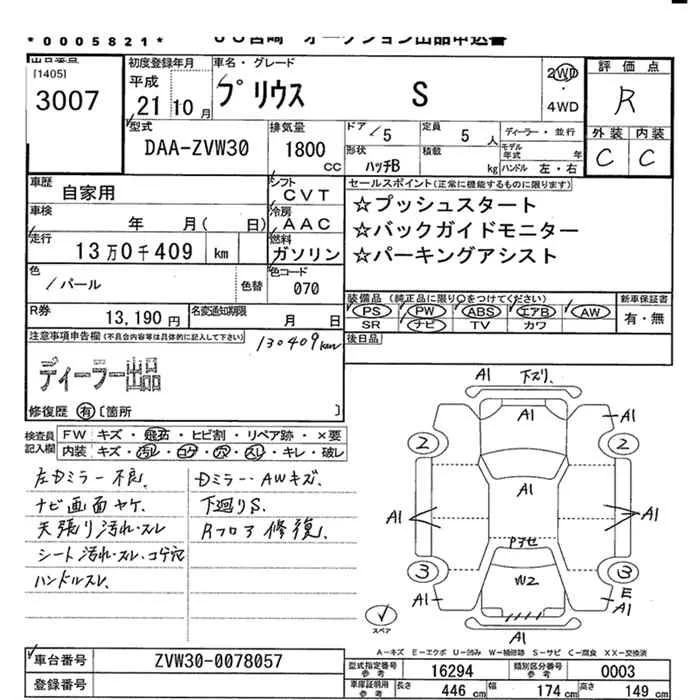 *0005821*
オークション出品申込書
[1405]
3007
初度登録年月
平成
21年10月
車名・グレード
プリウス S
2WD
・
4WD
評価点
R
外装 内装
C C
型式
DAA-ZVW30
排気量
1800
CC
ドア
5
定員
5人
ディーラー・並行
形状
ハッチB
積載
kg
モデル年式
年
ハンドル 左・右
車歴
自家用
シフト
CVT
車検
年 月( 日)
冷房
AAC
走行
13万0千409 km
燃料
ガソリン
色
/パール
色替
色コード
070
R券
13,190円
名変通知期限
月 日
セールスポイント(正常に機能するものに限ります)
☆プッシュスタート
☆バックガイドモニター
☆パーキングアシスト
装備品 (純正品に限り○をつけてください)
PS PW ABS エアB AW
SR ナビ TV カワ
新車保証書
有・無
後日品
注意事項申告欄(不具合内容等は具体的に記入して下さい)
130409km
ディーラー出品
修復歴 有 [箇所 ]
検査員
記入欄
FW キズ・飛石・ヒビ割・リペア跡・×要
内装 キズ・汚レ・コゲ・穴・スレ・キレ・破レ
左Dミラー不良.
ナビ画面ヤケ.
天張り汚れ・スレ
シート汚れ・スレ、コゲ穴
ハンドルスレ.
Dミラー・AWキズ.
下廻りS.
Rフロア修復.
A1 下ズリ.
A1
A1
2 2
A1
A1 A1
Pアセ
3 3
W2
A1
E
A1
A1
スペア
A－キズ E－エクボ U－凹み W－補修跡 S－サビ C－腐食 XX－交換済
車台番号
ZVW30-0078057
登録番号
型式指定番号
参考
16294
類別区分番号
参考
0003
車庫証明用
参考
長さ
446 cm
幅
174 cm
高さ
149 cm